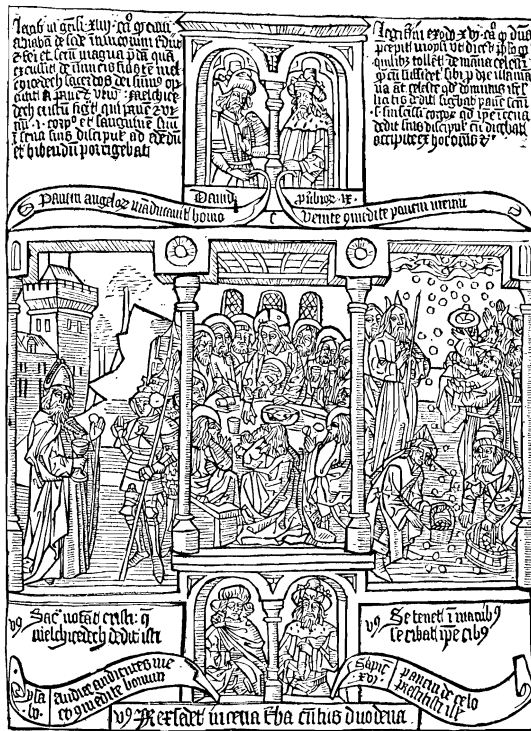 Legit in geñ. xiiii. ca° q̃ cum
abraham de sede inimicorum rediit
et secũ magna p̃da quã
excussit de inimicis suis tunc mel
chisedech sacerdos dei summi op
tulit ei panẽ & vinũ. Melchise
dech cristũ signat qui panẽ & vi
nũ .i. corp° et sanguinem suũ
ĩ cena suis discipulis ad edẽdũ
et bibendum porrigebat
Legit in exodo xvi. ca° q̃ dñs
p̃cepit moysi ut dicet pplo q̃
quilibz tolleret de manna celesti
q̃tũ sufficet sibi p die illa manna
aũt celeste q̃d dominus isrl
litis dedit sigbat panẽ scm
s. sui scissi corporis q̃d ip̃e in cena
dedit suis discipulis cũ dicebat
accipite ex hoc oms &c
Panem angelor manducavit homo
David
pūbior. ix.
Venite comedite panem meum
v9 Sacra notat cristi: q̃
melchisedech dedit isti
v9 Se tenet ĩ manibus
se cibat ipe cibus
ysa. lv.
Audite audientes me
et comedite bonum
Sapiẽ. xvi
panem de celo
prestitisti ill
v9 Rex sedet in cena turba cinctus duodena.